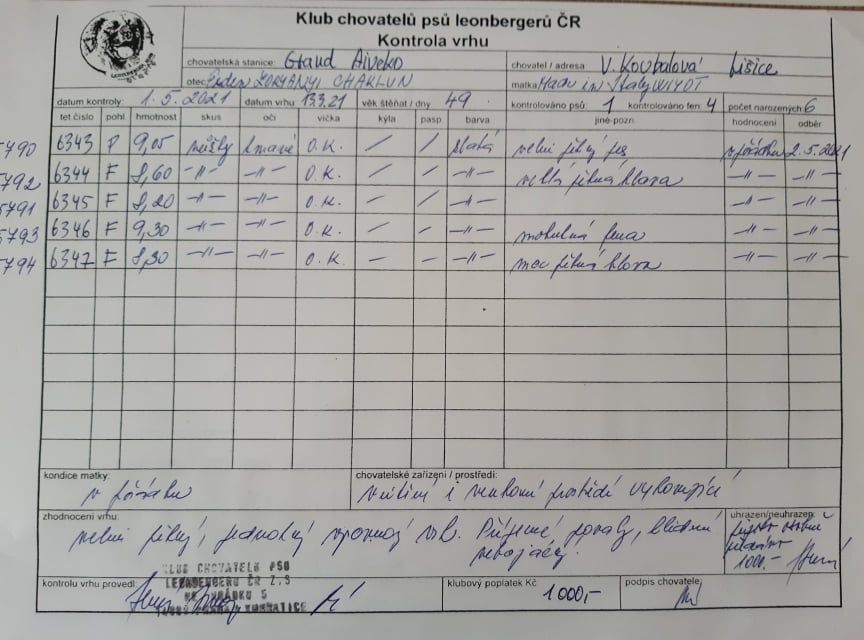 Klub chovatelů psů leonbergerů ČR
Kontrola vrhu
chovatelská stanice: Grand Aiveko
chovatel / adresa: V. Koubalová Lišice
otec: ZORHANYI CHAKLUN
matka: Made in Italy
datum kontroly: 1.5.2021 datum vrhu: 13.3.21 věk štěňat / dny 49 kontrolováno psů: 1 kontrolováno fen: 4 počet narozených: 6
tet.číslo pohl. hmotnost skus oči víčka kýla pasp. barva jiné-pozn. hodnocení odběr
5790 6343 P 9,05 nůžky tmavé O.K. / / zlatá velmi pěkný pes v pořádku 2.5.2021
5792 6344 F 8,60 -〃- -〃- O.K. / / -〃- velká pěkná hlava -〃- -〃-
5791 6345 F 8,20 -〃- -〃- O.K. / / -〃- -〃- -〃-
5793 6346 F 9,30 -〃- -〃- O.K. / / -〃- mohutná fena -〃- -〃-
5794 6347 F 8,30 -〃- -〃- O.K. / / -〃- moc pěkná hlava -〃- -〃-
kondice matky:
v pořádku
chovatelské zařízení / prostředí:
vnitřní i venkovní prostředí vyhovující
zhodnocení vrhu:
velmi pěkný, jednotný vrh. Příjemné povahy, klidní
nebojácní.
uhrazen/neuhrazen:
1000,-
KLUB CHOVATELŮ PSŮ
LEONBERGERŮ ČR Z.S
kontrolu vrhu provedl:
klubový poplatek Kč 1000,-
podpis chovatele: